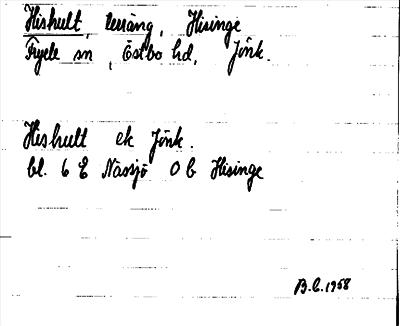 Hishult, terräng, Hisinge
Fryele sn, Östbo hd, Jönk.
Hishult ek Jönk.
bl. 6 E Nässjö 0 b Hisinge
B.C. 1958